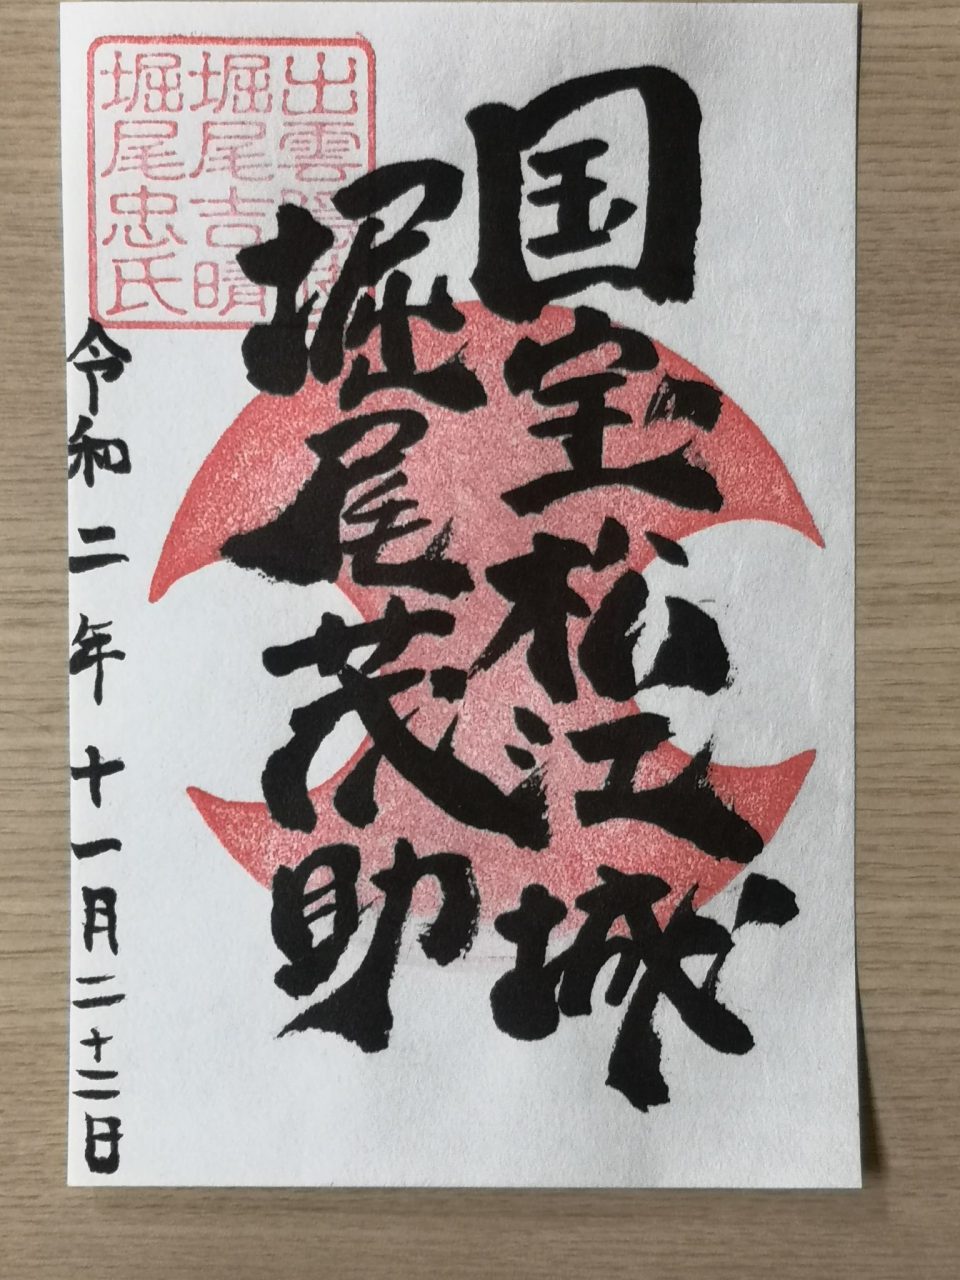 国宝松江城
堀尾茂助
出雲
堀尾吉晴
堀尾忠氏
令和二年十一月二十二日